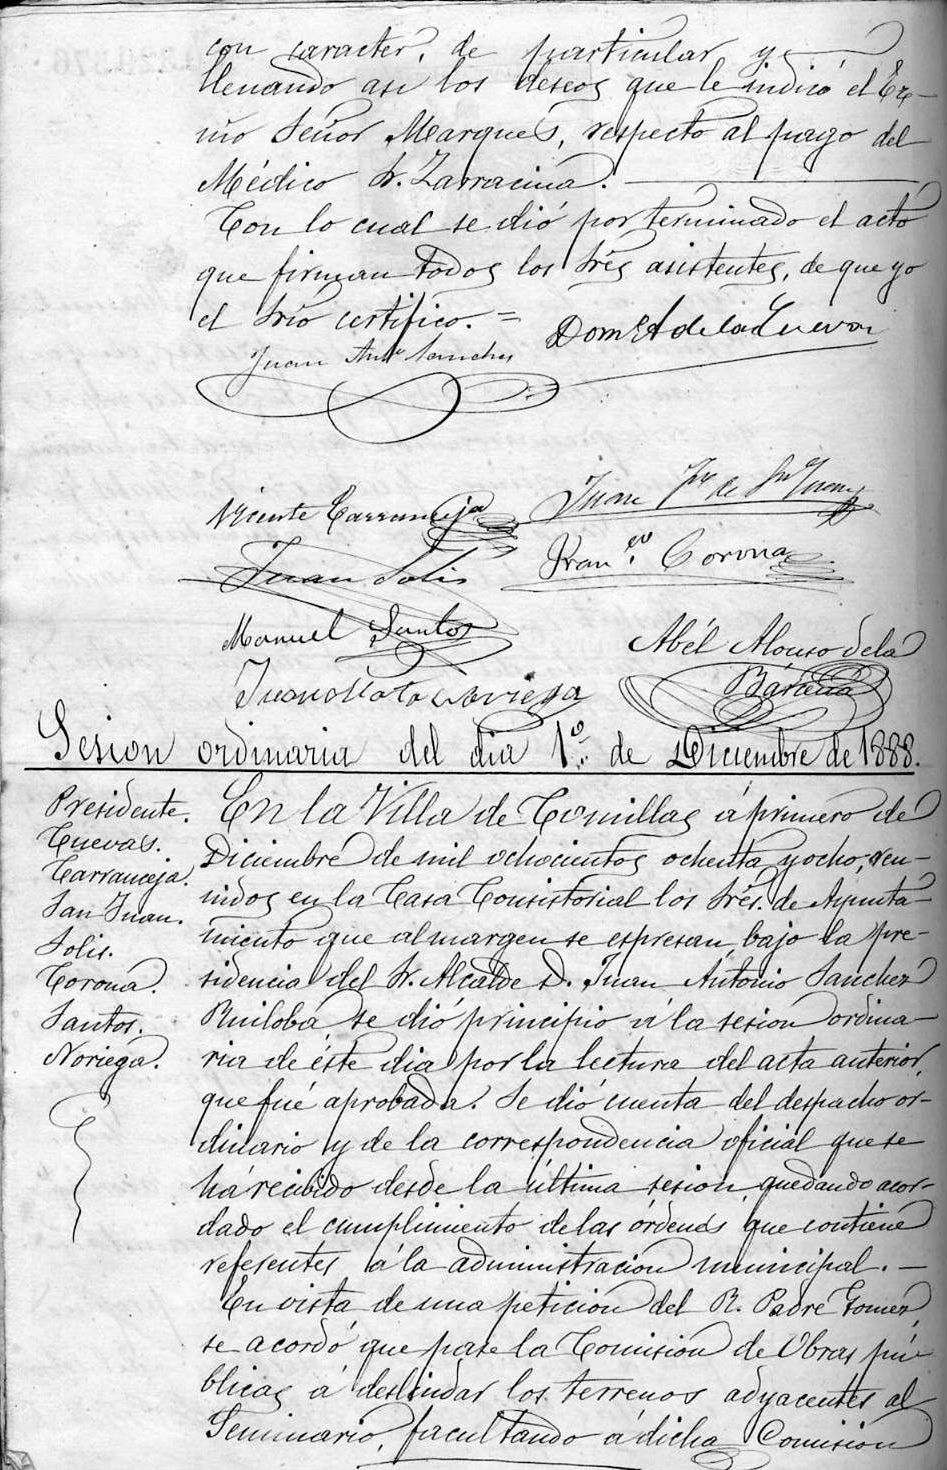 con caracter, de particular y
llenando asi los deseos que le indicó el Ex-
mo Señor Marques, respecto al pago del
Médico Sr. Zarracina.
Con lo cual se dió por terminado el acto
que firman todos los Sres asistentes, de que yo
el Srio certifico. =
Dom A de la Cueva
Juan Anto Sanchez
Vicente Carranceja
Juan de Sn Juan
Juan Solis
Fran.co Corona
Manuel Santos
Abél Alonso de la
Bárcena
Juan Noriega
Sesion ordinaria del dia 1º de Diciembre de 1888.
Presidente.
Cuevas.
Carranceja.
San Juan.
Solis.
Corona.
Santos.
Noriega.
En la Villa de Comillas á primero de
Diciembre de mil ochocientos ochenta y ocho, reu-
nidos en la Casa Consistorial los Sres. de Ayunta-
miento que al margen se espresan bajo la pre-
sidencia del Sr. Alcalde D. Juan Antonio Sanchez
Ruiloba se dió principio á la sesion ordina-
ria de éste dia por la lectura del acta anterior,
que fué aprobada. Se dió cuenta del despacho or-
dinario y de la correspondencia oficial que se
há recibido desde la última sesion, quedando acor-
dado el cumplimiento de las órdenes que contiene
referentes á la administracion municipal. —
En vista de una peticion del R. Padre Gomez,
se acordó que pase la Comision de Obras pú-
blicas á deslindar los terrenos adyacentes al
Seminario, facultando á dicha Comision